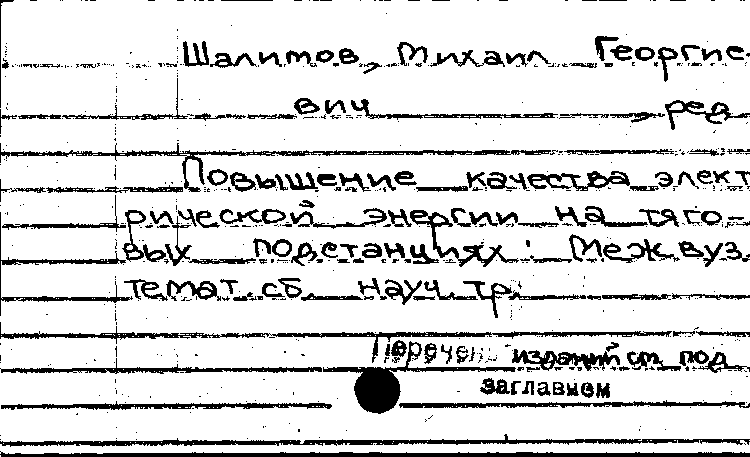 Шалимов, Михаил Георгие-
вич , ред
Повышение качества элект
рической энергии на тяго-
вых подстанциях: Межвуз.
темат. сб. науч. тр.
Перечень изданий см. под
заглавием